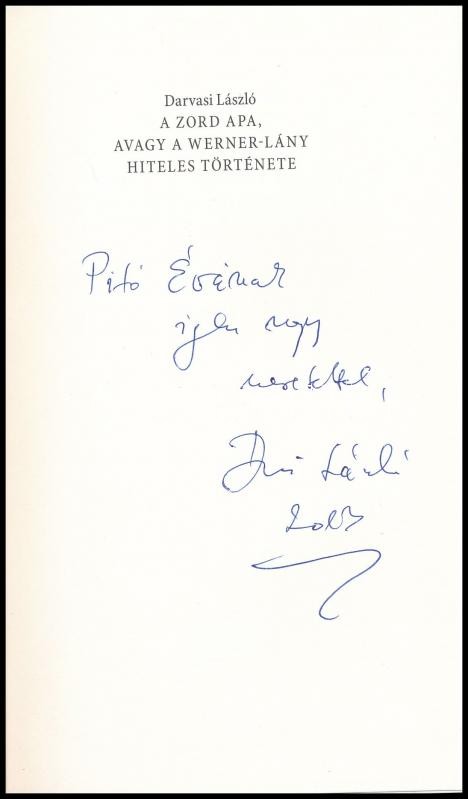 Darvasi László
A ZORD APA,
AVAGY A WERNER-LÁNY
HITELES TÖRTÉNETE
Pitó Évának
igen nagy
szeretettel,
László